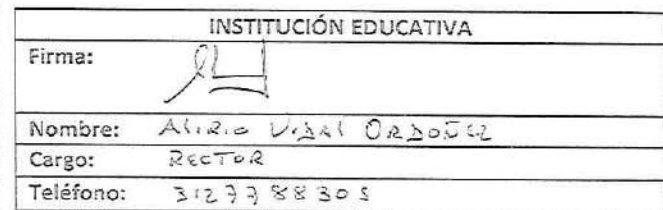 INSTITUCIÓN EDUCATIVA
Firma:
Nombre: Alirio Vidal Ordoñez
Cargo: RECTOR
Teléfono: 3127788305